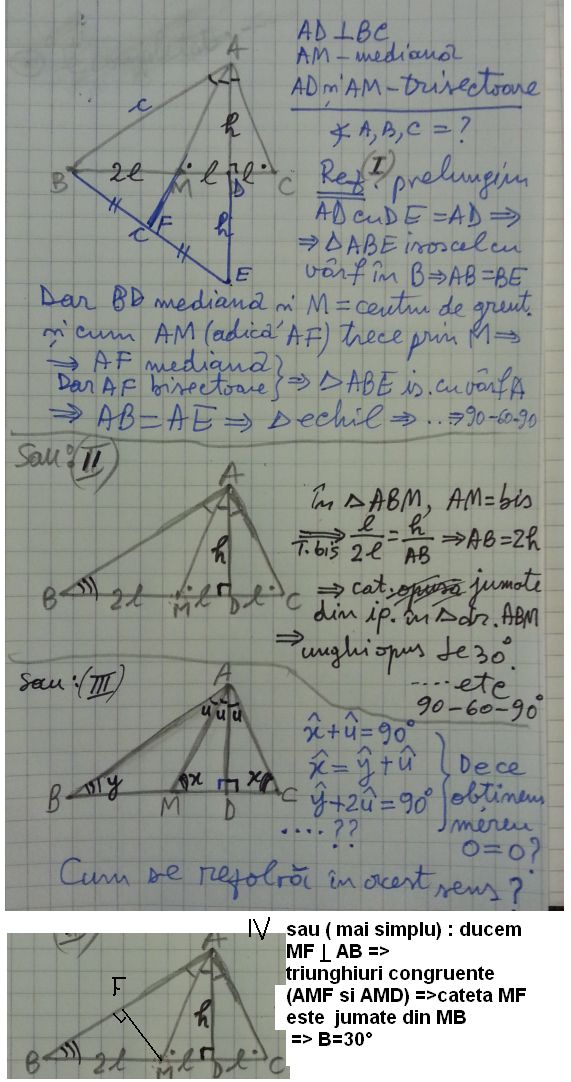 AD ⊥ BC
AM - mediană
AD și AM - trisectoare
∢ A, B, C = ?
Rez. (I) prelungim
AD cu DE = AD ⇒
⇒ △ABE isoscel cu
vârf în B ⇒ AB = BE
A
c
h
B
2l
M
l
D
l
C
F
C
h
E
Dar BD mediană și M = centru de greut.
și cum AM (adică AF) trece prin M ⇒
⇒ AF mediană
Dar AF bisectoare } ⇒ △ABE is. cu vârf A
⇒ AB = AE ⇒ △ echil ⇒ ... ⇒ 90-60-90
Sau: (II)
A
h
B
2l
M
l
D
l
C
în △ABM, AM = bis
⇒ T. bis l/2l = h/AB ⇒ AB = 2h
⇒ cat. opusă jumate
din ip. în △dr. ABM
⇒ unghi opus de 30°.
.... etc
90-60-90°
Sau: (III)
A
u u u
B
y
M
x
D
x
C
x̂ + û = 90°
x̂ = ŷ + û
ŷ + 2û = 90°
....??
} De ce
obținem
mereu
0 = 0?
Cum se rezolvă în acest sens?
IV sau ( mai simplu) : ducem
MF ⊥ AB =>
triunghiuri congruente
(AMF si AMD) =>cateta MF
este jumate din MB
=> B=30°
A
F
h
B
2l
M
l
D
l
C